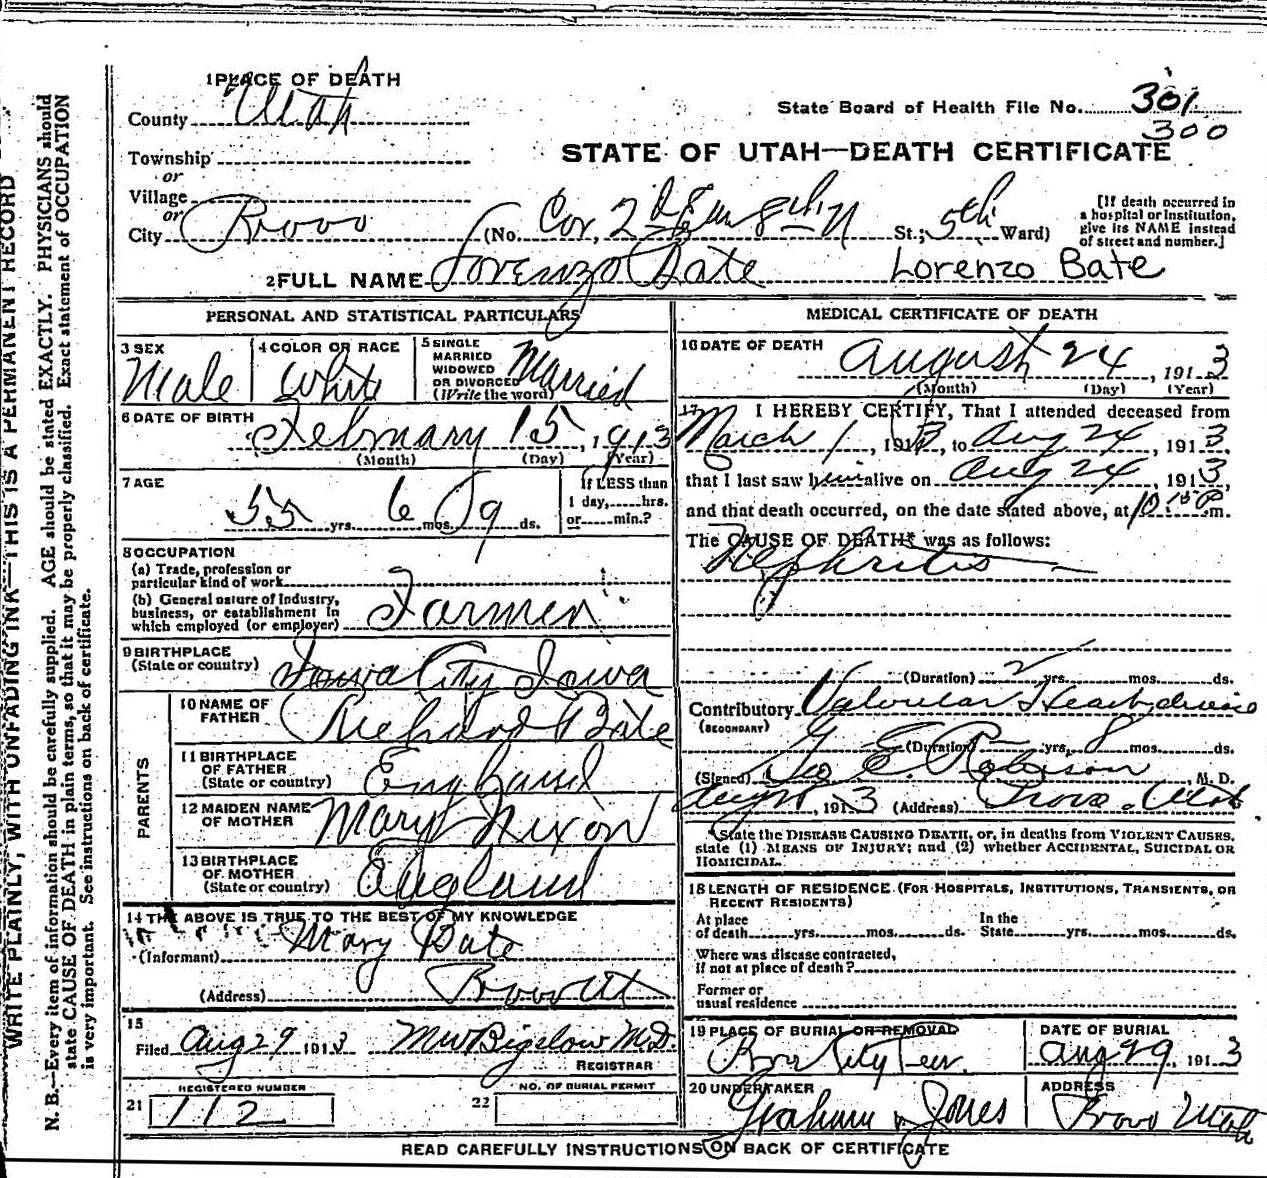 1 PLACE OF DEATH
County Utah
State Board of Health File No. 301
300
Township
or
Village
or
City Provo
STATE OF UTAH—DEATH CERTIFICATE
(No. Cor. 2d 8th N St.; 5th Ward)
[If death occurred in
a hospital or institution,
give its NAME instead
of street and number.]
2 FULL NAME Lorenzo Bate Lorenzo Bate
PERSONAL AND STATISTICAL PARTICULARS
3 SEX Male
4 COLOR OR RACE White
5 SINGLE
MARRIED
WIDOWED
OR DIVORCED
(Write the word) Married
6 DATE OF BIRTH
February 15, 1913
(Month) (Day) (Year)
7 AGE
55 yrs. 6 mos. 9 ds.
If LESS than
1 day,......hrs.
or......min.?
8 OCCUPATION
(a) Trade, profession or
particular kind of work
(b) General nature of industry,
business, or establishment in
which employed (or employer) Farmer
9 BIRTHPLACE
(State or country) Iowa City Iowa
PARENTS
10 NAME OF
FATHER Richard Bate
11 BIRTHPLACE
OF FATHER
(State or country) England
12 MAIDEN NAME
OF MOTHER Mary Nixon
13 BIRTHPLACE
OF MOTHER
(State or country) England
14 THE ABOVE IS TRUE TO THE BEST OF MY KNOWLEDGE
(Informant) Mary Bate
(Address) Provo Ut
15
Filed Aug 29 1913 M W Bigelow M.D.
REGISTRAR
REGISTERED NUMBER
21 112
NO. OF BURIAL PERMIT
22
MEDICAL CERTIFICATE OF DEATH
16 DATE OF DEATH
August 24, 1913
(Month) (Day) (Year)
17 I HEREBY CERTIFY, That I attended deceased from
March 1, 1913, to Aug 24, 1913
that I last saw him alive on Aug 24, 1913,
and that death occurred, on the date stated above, at 10:15 P m.
The CAUSE OF DEATH* was as follows:
Nephritis
(Duration) 2 yrs. mos. ds.
Contributory Valvular Heart disease
(SECONDARY)
(Duration) yrs. 8 mos. ds.
(Signed) Geo E. Robison, M. D.
, 1913 (Address) Provo, Utah
State the DISEASE CAUSING DEATH, or, in deaths from VIOLENT CAUSES,
state (1) MEANS OF INJURY; and (2) whether ACCIDENTAL, SUICIDAL OR
HOMICIDAL.
18 LENGTH OF RESIDENCE (FOR HOSPITALS, INSTITUTIONS, TRANSIENTS, OR
RECENT RESIDENTS)
At place
of death......yrs......mos......ds.
In the
State......yrs......mos......ds.
Where was disease contracted,
if not at place of death?
Former or
usual residence
19 PLACE OF BURIAL OR REMOVAL
City Cem.
DATE OF BURIAL
Aug 29, 1913
20 UNDERTAKER
Graham & Jones
ADDRESS
Provo Utah
READ CAREFULLY INSTRUCTIONS ON BACK OF CERTIFICATE
WRITE PLAINLY, WITH UNFADING INK—THIS IS A PERMANENT RECORD
N. B.—Every item of information should be carefully supplied. AGE should be stated EXACTLY. PHYSICIANS should
state CAUSE OF DEATH in plain terms, so that it may be properly classified. Exact statement of OCCUPATION
is very important. See instructions on back of certificate.